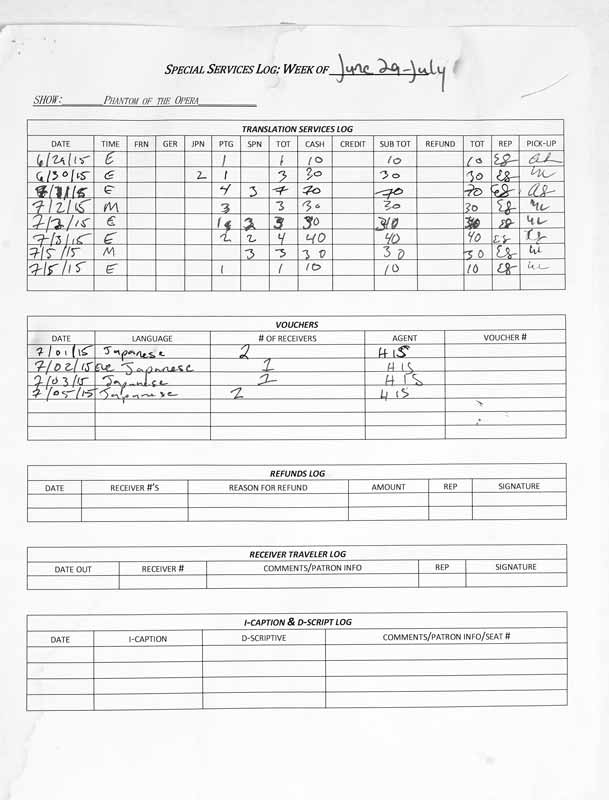 SPECIAL SERVICES LOG: WEEK OF June 29-July
SHOW: PHANTOM OF THE OPERA
TRANSLATION SERVICES LOG
DATE TIME FRN GER JPN PTG SPN TOT CASH CREDIT SUB TOT REFUND TOT REP PICK-UP
6/29/15 E 1 1 10 10 10 EG
6/30/15 E 2 1 3 30 30 30 EG
7/1/15 E 4 3 7 70 70 70 EG
7/2/15 M 3 3 30 30 30 EG
7/2/15 E 3 EG
7/3/15 E 2 2 4 40 40 40 EG
7/5/15 M 3 3 30 30 30 EG
7/5/15 E 1 1 10 10 10 EG
VOUCHERS
DATE LANGUAGE # OF RECEIVERS AGENT VOUCHER #
7/01/15 Japanese 2 HIS
7/02/15 Eve Japanese 1 HIS
7/03/15 Japanese 1 HIS
7/05/15 Japanese 2 HIS
REFUNDS LOG
DATE RECEIVER #'S REASON FOR REFUND AMOUNT REP SIGNATURE
RECEIVER TRAVELER LOG
DATE OUT RECEIVER # COMMENTS/PATRON INFO REP SIGNATURE
I-CAPTION & D-SCRIPT LOG
DATE I-CAPTION D-SCRIPTIVE COMMENTS/PATRON INFO/SEAT #